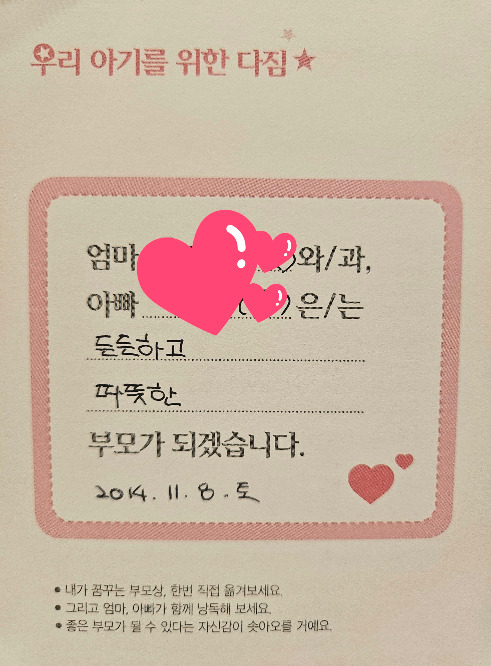 우리 아기를 위한 다짐
엄마 와/과,
아빠 은/는
든든하고
따뜻한
부모가 되겠습니다.
2014. 11. 8. 토
• 내가 꿈꾸는 부모상, 한번 직접 옮겨보세요.
• 그리고 엄마, 아빠가 함께 낭독해 보세요.
• 좋은 부모가 될 수 있다는 자신감이 솟아오를 거예요.